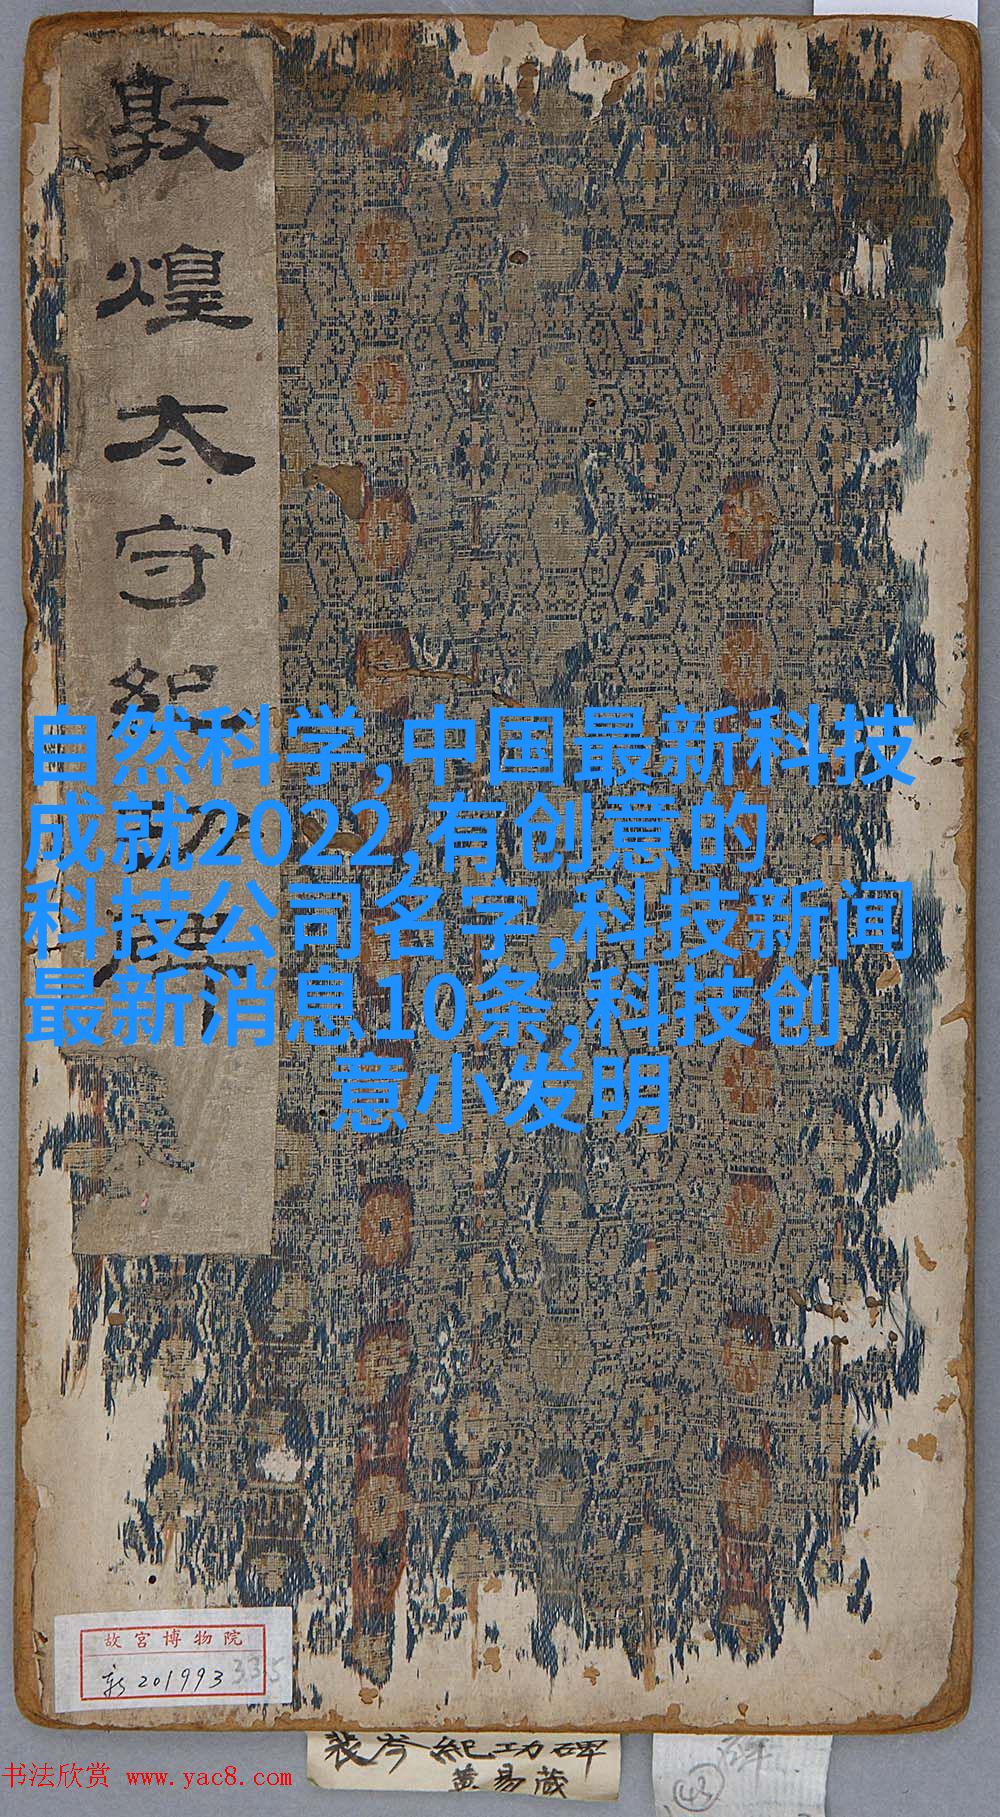 敦煌太守紀功碑
自然科学,中国最新科技
成就2022,有创意的
科技公司名字,科技新闻
最新消息10条,科技创
意小发明
故宫博物院
新201993
335
裴岑紀功碑
黄易藏
43
书法欣赏 www.yac8.com